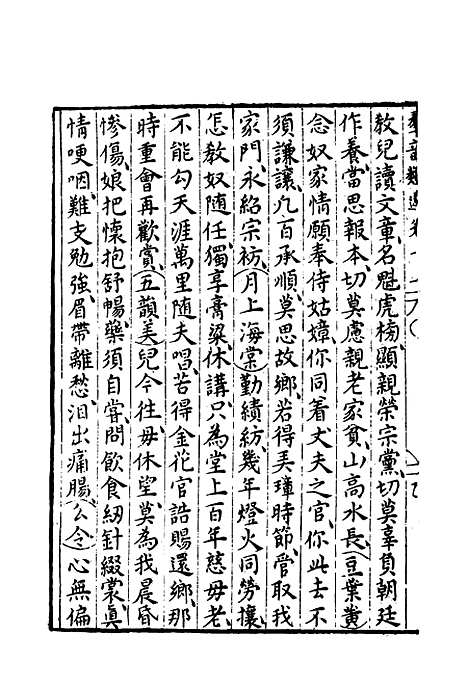 群音類選卷
教兒讀文章、名魁虎榜、顯親榮宗黨、切莫辜負朝廷
作養、當思報本、切莫慮親老家貧、山高水長、(豆葉黃)
念奴家情願奉侍姑嫜、你同着丈夫之官、你此去不
須謙讓、凢百承順、莫思故鄉、若得弄璋時節、管取我
家門、永紹宗祊、(月上海棠)勤績紡、幾年燈火同勞攘、
怎教奴隨任、獨享膏粱、休講、只為堂上百年慈母老、
不能勾天涯萬里隨夫唱、苦得金花官誥賜還鄉、那
時重會再歡賞、(五韻美)兒今往、毋休望、莫為我晨昏
慘傷、娘把懷抱舒暢、藥須自嘗、問飲食紉針綴裳、眞
情哽咽、難支勉強、眉帶離愁、泪出痛腸、(么令)心無偏